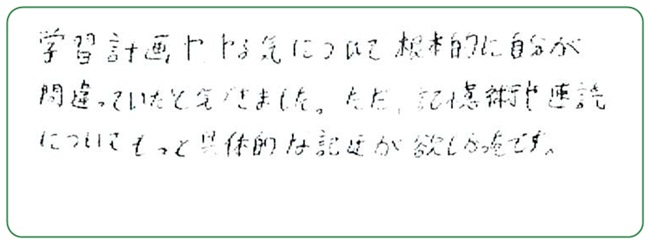 学習計画ややる気について根本的に自分が
間違っていたと気づきました。ただ、記憶術や速読
についてもっと具体的な記述が欲しかったです。